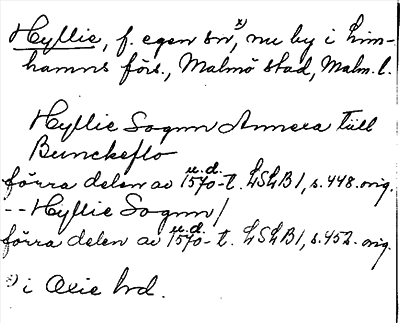 Hyllie, f. egen sn x), nu by i Lim-
hamns förs., Malmö stad, Malm. l.
Hyllie Sognn Annexa till
Bunckeflo
förra delen av u.d. 1570-t. LSLB1, s. 448. orig.
-- Hyllie Sognn/
förra delen av u.d. 1570-t. LSLB1, s. 452. orig.
x) i Oxie hrd.